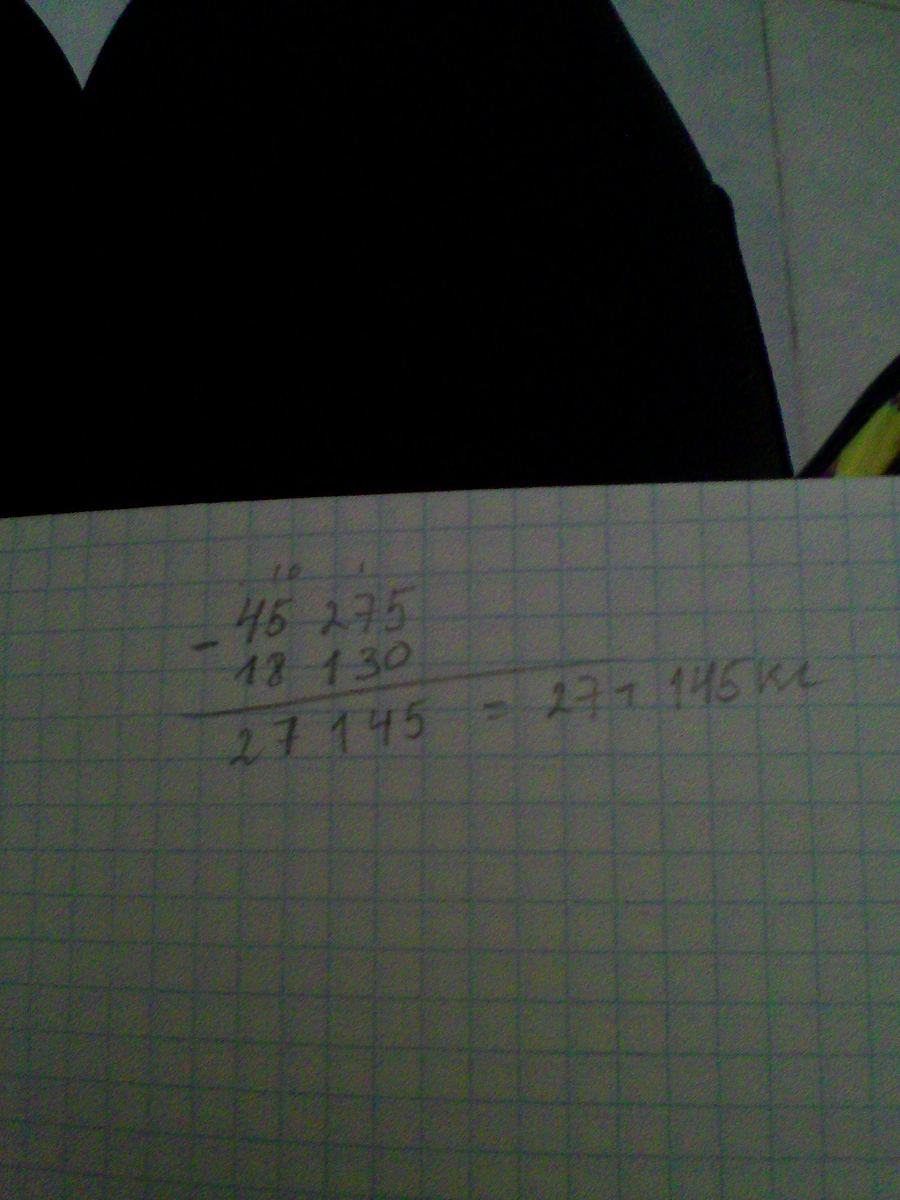 10
- 45 275
18 130
27 145 = 27 т 145 кг